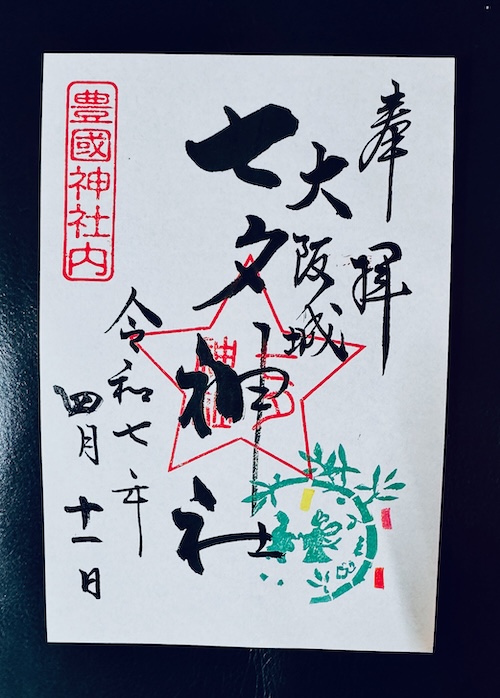 奉拝
大阪城
七夕神社
令和七年
四月十一日
豊國神社内